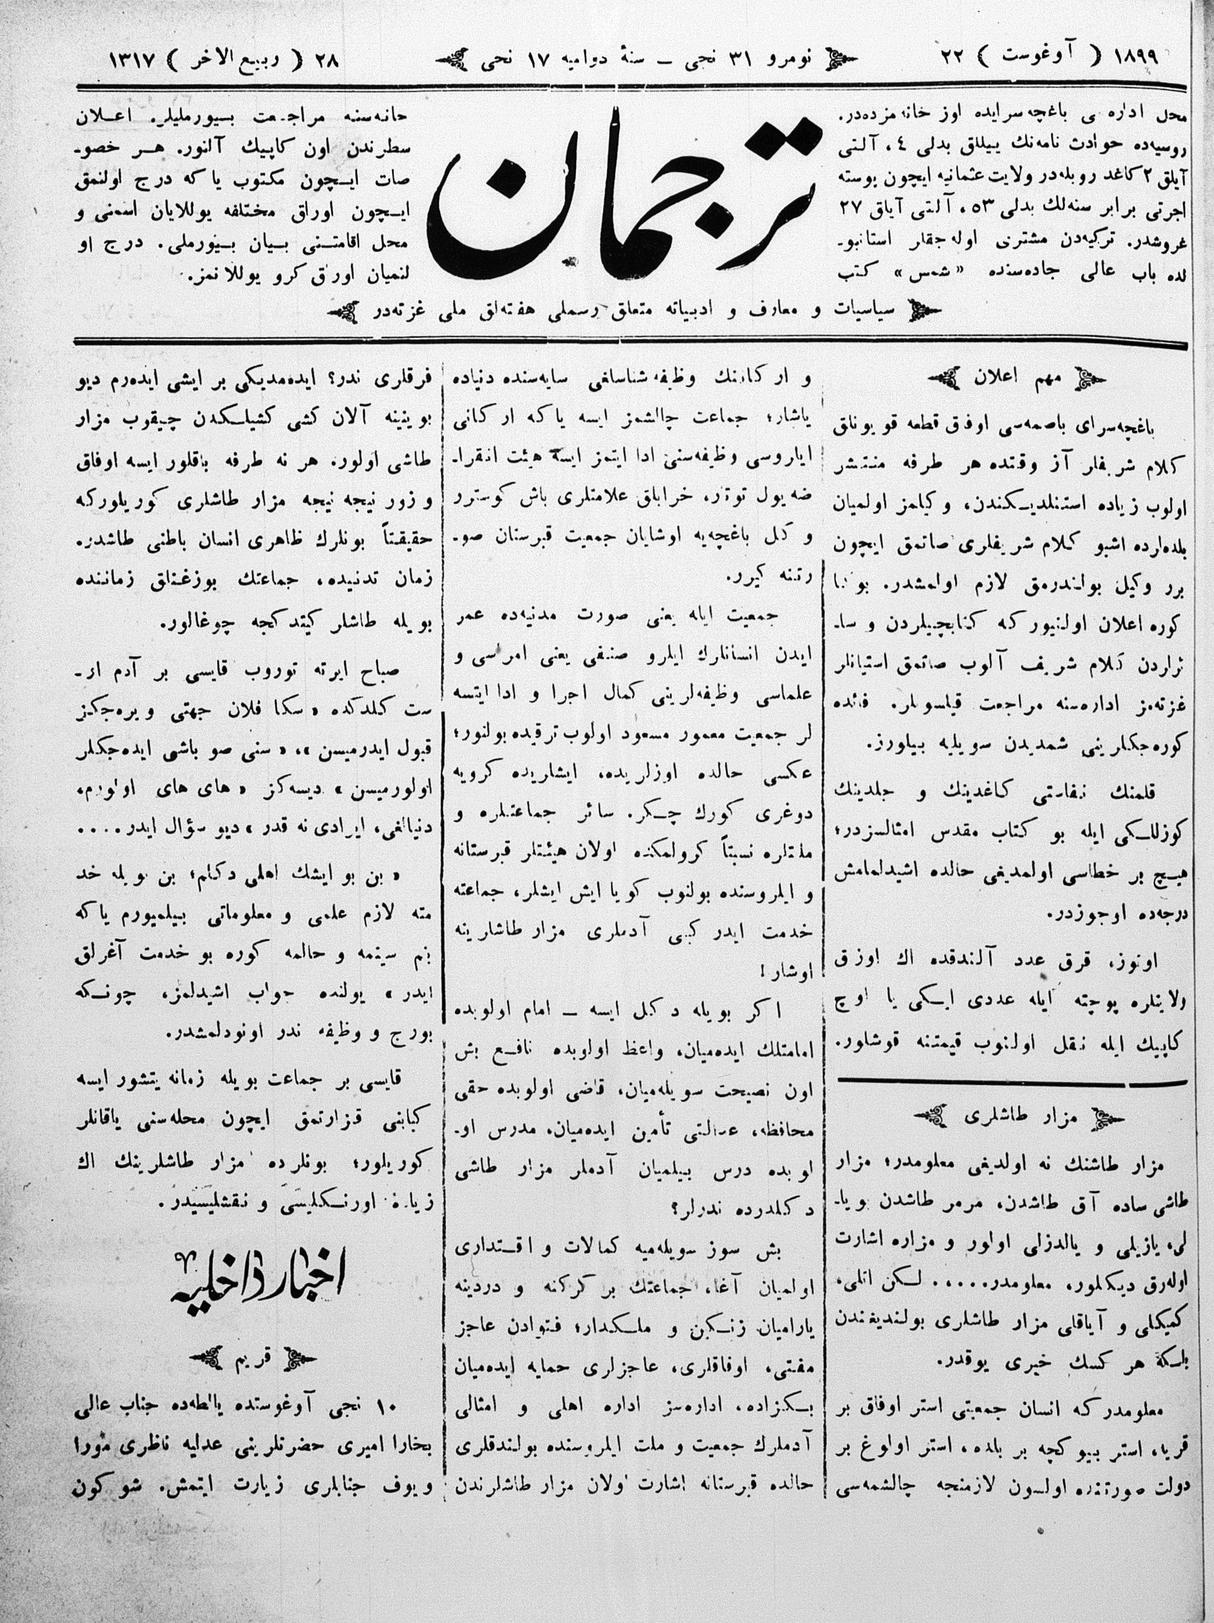 ١٨٩٩ ( آوغوست ) ٢٢
نومرو ٣١ نجی ــ سنهٔ دوامیه ١٧ نجی
٢٨ ( ربیع الاخر ) ١٣١٧
محل اداره ی باغچه‌سرایده اوز خانه مزده‌در.
روسیه‌ده حوادث نامه‌نك ییللق بدلی ٤، آلتی
آیلق ٢ کاغد روبله‌در ولایت عثمانیه ایچون پوسته
اجرتی برابر سنه‌لك بدلی ٥٣، آلتی آیلق ٢٧
غروشدر. ترکیه‌دن مشتری اوله‌جقلر استانبو-
لده باب عالی جاده‌سنده «شمس» کتب
ترجمان
خانه‌سنه مراجعت بیورملیلر. اعلان
سطرندن اون کاپیك آلنور. هر خصو-
صات ایچون مکتوب یاکه درج اولنمق
ایچون اوراق مختلفه یوللایان اسمنی و
محل اقامتنی بیان بیورملی. درج او
لنمیان اوراق کرو یوللانمز.
سیاسیات و معارف و ادبیاته متعلق رسملی هفته‌لق ملی غزته‌در
مهم اعلان
باغچه‌سرای باصمه‌سی اوفاق قطعه قویونلق
کلام شریفلر آز وقتده هر طرفه منتشر
اولوب زیاده استنلدیکندن، وکیلمز اولمیان
بلده‌لرده اشبو کلام شریفلری صاتمق ایچون
برر وکیل بولندرمق لازم اولمشدر. بوکا
کوره اعلان اولنیورکه کتابچیلردن و سا-
ئرلردن کلام شریف آلوب صاتمق استیانلر
غزته‌مز اداره‌سنه مراجعت قیلسونلر. فائده
کوره‌جکلرینی شمدیدن سویلیه بیلورز.
قلمنك نفاستی کاغدینك و جلدینك
کوزللکی ایله بو کتاب مقدس امثالسزدر؛
هیچ بر خطاسی اولمدیغی حالده اشیدلمامش
درجه‌ده اوجوزدر.
اوتوز، قرق عدد آلندقده اك اوزق
ولایتلره پوچته ایله عددی ایکی یا اوچ
کاپیك ایله نقل اولنوب قیمتنه قوشلور.
مزار طاشلری
مزار طاشنك نه اولدیغی معلومدر؛ مزار
طاشی ساده آق طاشدن، مرمر طاشدن بویا-
لی، یازیلی و یالدزلی اولور و مزاره اشارت
اوله‌رق دیکلمور، معلومدر..... لکن اتلی،
کمیکلی و آیاقلی مزار طاشلری بولندیغندن
بلکه هر کسك خبری یوقدر.
معلومدرکه انسان جمعیتی استر اوفاق بر
قریه، استر بیوکچه بر بلده، استر اولوغ بر
دولت صورتنده اولسون لازمنجه چالشمه‌سی
و ارکاننك وظیفه شناسلغی سایه‌سنده دنیاده
یاشار؛ جماعت چالشمز ایسه یاکه ارکانی
ایاروسی وظیفه‌سنی ادا ایتمز ایسه هیئت انقرا-
ضه یول توتار، خرابلق علامتلری باش کوسترر
و کل باغچه‌یه اوشایان جمعیت قبرستان صو-
رتنه کیرر.
جمعیت ایله یعنی صورت مدنیه‌ده عمر
ایدن انسانلرك ایلرو صنفی یعنی امراسی و
علماسی وظیفه‌لرینی کمال اجرا و ادا ایتسه
لر جمعیت معمور مسعود اولوب ترقیده بولنور؛
عکسی حالده اوزلریده، ایشلریده کرویه
دوغری کورك چکر. سائر جماعتلره و
ملتلره نسبتاً کرولمکده اولان هیئتلر قبرستانه
و ایلمروسنده بولنوب کویا ایش ایشلر، جماعته
خدمت ایدر کبی آدملری مزار طاشلرینه
اوشار!
اکر بویله دکل ایسه ــ امام اولوبده
امامتلك ایده‌میان، واعظ اولوبده نافع بش
اون نصیحت سویله‌میان، قاضی اولوبده حقی
محافظه، عدالتی تأمین ایده‌میان، مدرس او-
لوبده درس بیلمیان آدملر مزار طاشی
دکلدرده ندرلر؟
بش سوز سویله‌میه کمالات و اقتداری
اولمیان آغا، جماعتك بر کرکنه و دردینه
یارامیان زنکین و ملکدار؛ فتوادن عاجز
مفتی، اوفاقلری، عاجزلری حمایه ایده‌میان
بکزاده، اداره‌سز اداره اهلی و امثالی
آدملرك جمعیت و ملت ایلمروسنده بولندقلری
حالده قبرستانه اشارت اولان مزار طاشلرندن
فرقلری ندر؟ ایده‌مدیکی بر ایشی ایده‌رم دیو
بوینینه آلان کشی کشیلکدن چیقوب مزار
طاشی اولور. هر نه طرفه باقلور ایسه اوفاق
و زور نیجه نیجه مزار طاشلری کوریلورکه
حقیقتاً بونلرك ظاهری انسان باطنی طاشدر.
زمان تدنیده، جماعتك بوزغنلق زماننده
بویله طاشلر کیتدکجه چوغالور.
صباح ایرته توروب قایسی بر آدم را-
ست کلدکده «سکا فلان جهتی ویره‌جکز
قبول ایدرمیسن»، «سنی صو باشی ایده‌جکلر
اولورمیسن» دیسه‌کز «های های اولورم،
دنیالغی، ایرادی نه قدر» دیو سؤال ایدر....
«بن بو ایشك اهلی دکلم؛ بن بویله خد
مته لازم علمی و معلوماتی بیلمیورم یاکه
بنم سینمه و حالمه کوره بو خدمت آغرلق
ایدر» یولنده جواب اشیدلمز، چونکه
بورج و وظیفه ندر اونودلمشدر.
قایسی بر جماعت بویله زمانه یتشور ایسه
کبابنی قزارتمق ایچون محله‌سنی یاقانلر
کوریلور؛ بونلرده مزار طاشلرینك اك
زیاده اورنکلیسی و نقشلیسیدر.
اخبار داخلیه
قریم
١٠ نجی آوغوستده یالطه‌ده جناب عالی
بخارا امیری حضرتلرینی عدلیه ناظری مورا
ویوف جنابلری زیارت ایتمش. شو کون